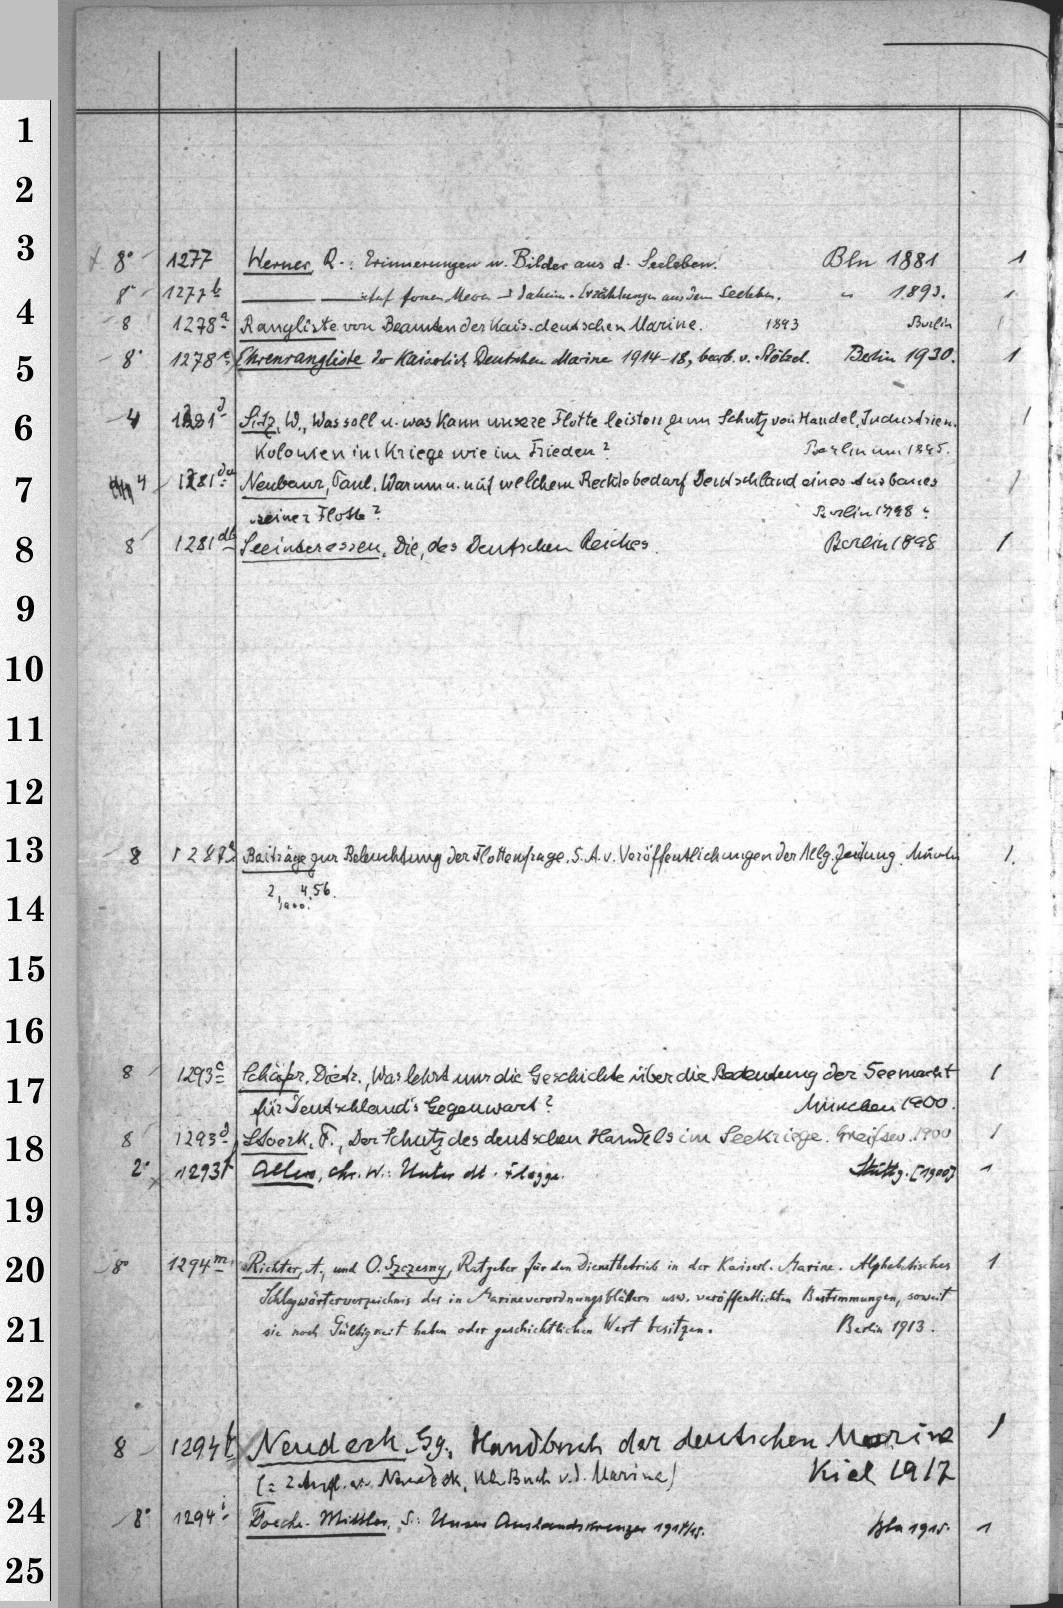 1
2
3
8° 1277 Werner, R.: Erinnerungen u. Bilder aus d. Seeleben. Bln 1881 1
8° 1277b Auf fernen Meeren u. Daheim. Erzählungen aus dem Seeleben. " 1893. 1
4
8 1278a Rangliste von Beamten der Kais. deutschen Marine. 1893 Berlin 1
5
8° 1278c Ehrenrangliste der Kaiserlich Deutschen Marine 1914-18, bearb. v. Stölzel. Berlin 1930. 1
6
4 1281d Sitz, W., Was soll u. was kann unsere Flotte leisten zum Schutz von Handel, Industrien.
Kolonien im Kriege wie im Frieden? Berlin um 1895. 1
7
4 1281da Neubaur, Paul. Warum u. mit welchem Rechte bedarf Deutschland eines Ausbaues 1
seiner Flotte? Berlin 1898
8
8 1281db Seeinteressen, Die, des Deutschen Reiches. Berlin 1898 1
9
10
11
12
13
8 1287a Beiträge zur Beleuchtung der Flottenfrage. S.A. v. Veröffentlichungen der Allg. Zeitung. 1.
2, 4,56.
1900.
14
15
16
8 1293c Schäfer, Dietr., Was lehrt uns die Geschichte über die Bedeutung der Seemacht 1
17
für Deutschland's Gegenwart? München 1900.
18
8 1293d Stoerk, F., Der Schutz des deutschen Handels im Seekriege. Greifsw. 1900 1
2° 1293f Allers, Chr. W.: Unter dt. Flagge. Stuttg. [1900] 1
19
20
8° 1294m Richter, A., und O. Szczesny, Ratgeber für den Dienstbetrieb in der Kaiserl. Marine. Alphabetisches 1
Schlagwörterverzeichnis der in Marineverordnungsblättern usw. veröffentlichten Bestimmungen, soweit
21
sie noch Gültigkeit haben oder geschichtlichen Wert besitzen. Berlin 1913.
22
23
8 1294k Neudeck, Gg. Handbuch der deutschen Marine 1
(= 2 Aufl. v. Neudeck, Kl. Buch v. d. Marine) Kiel 1917
24
8° 1294i Toeche-Mittler, S.: Unsere Auslandskreuzer 1914/15. Bln 1915. 1
25